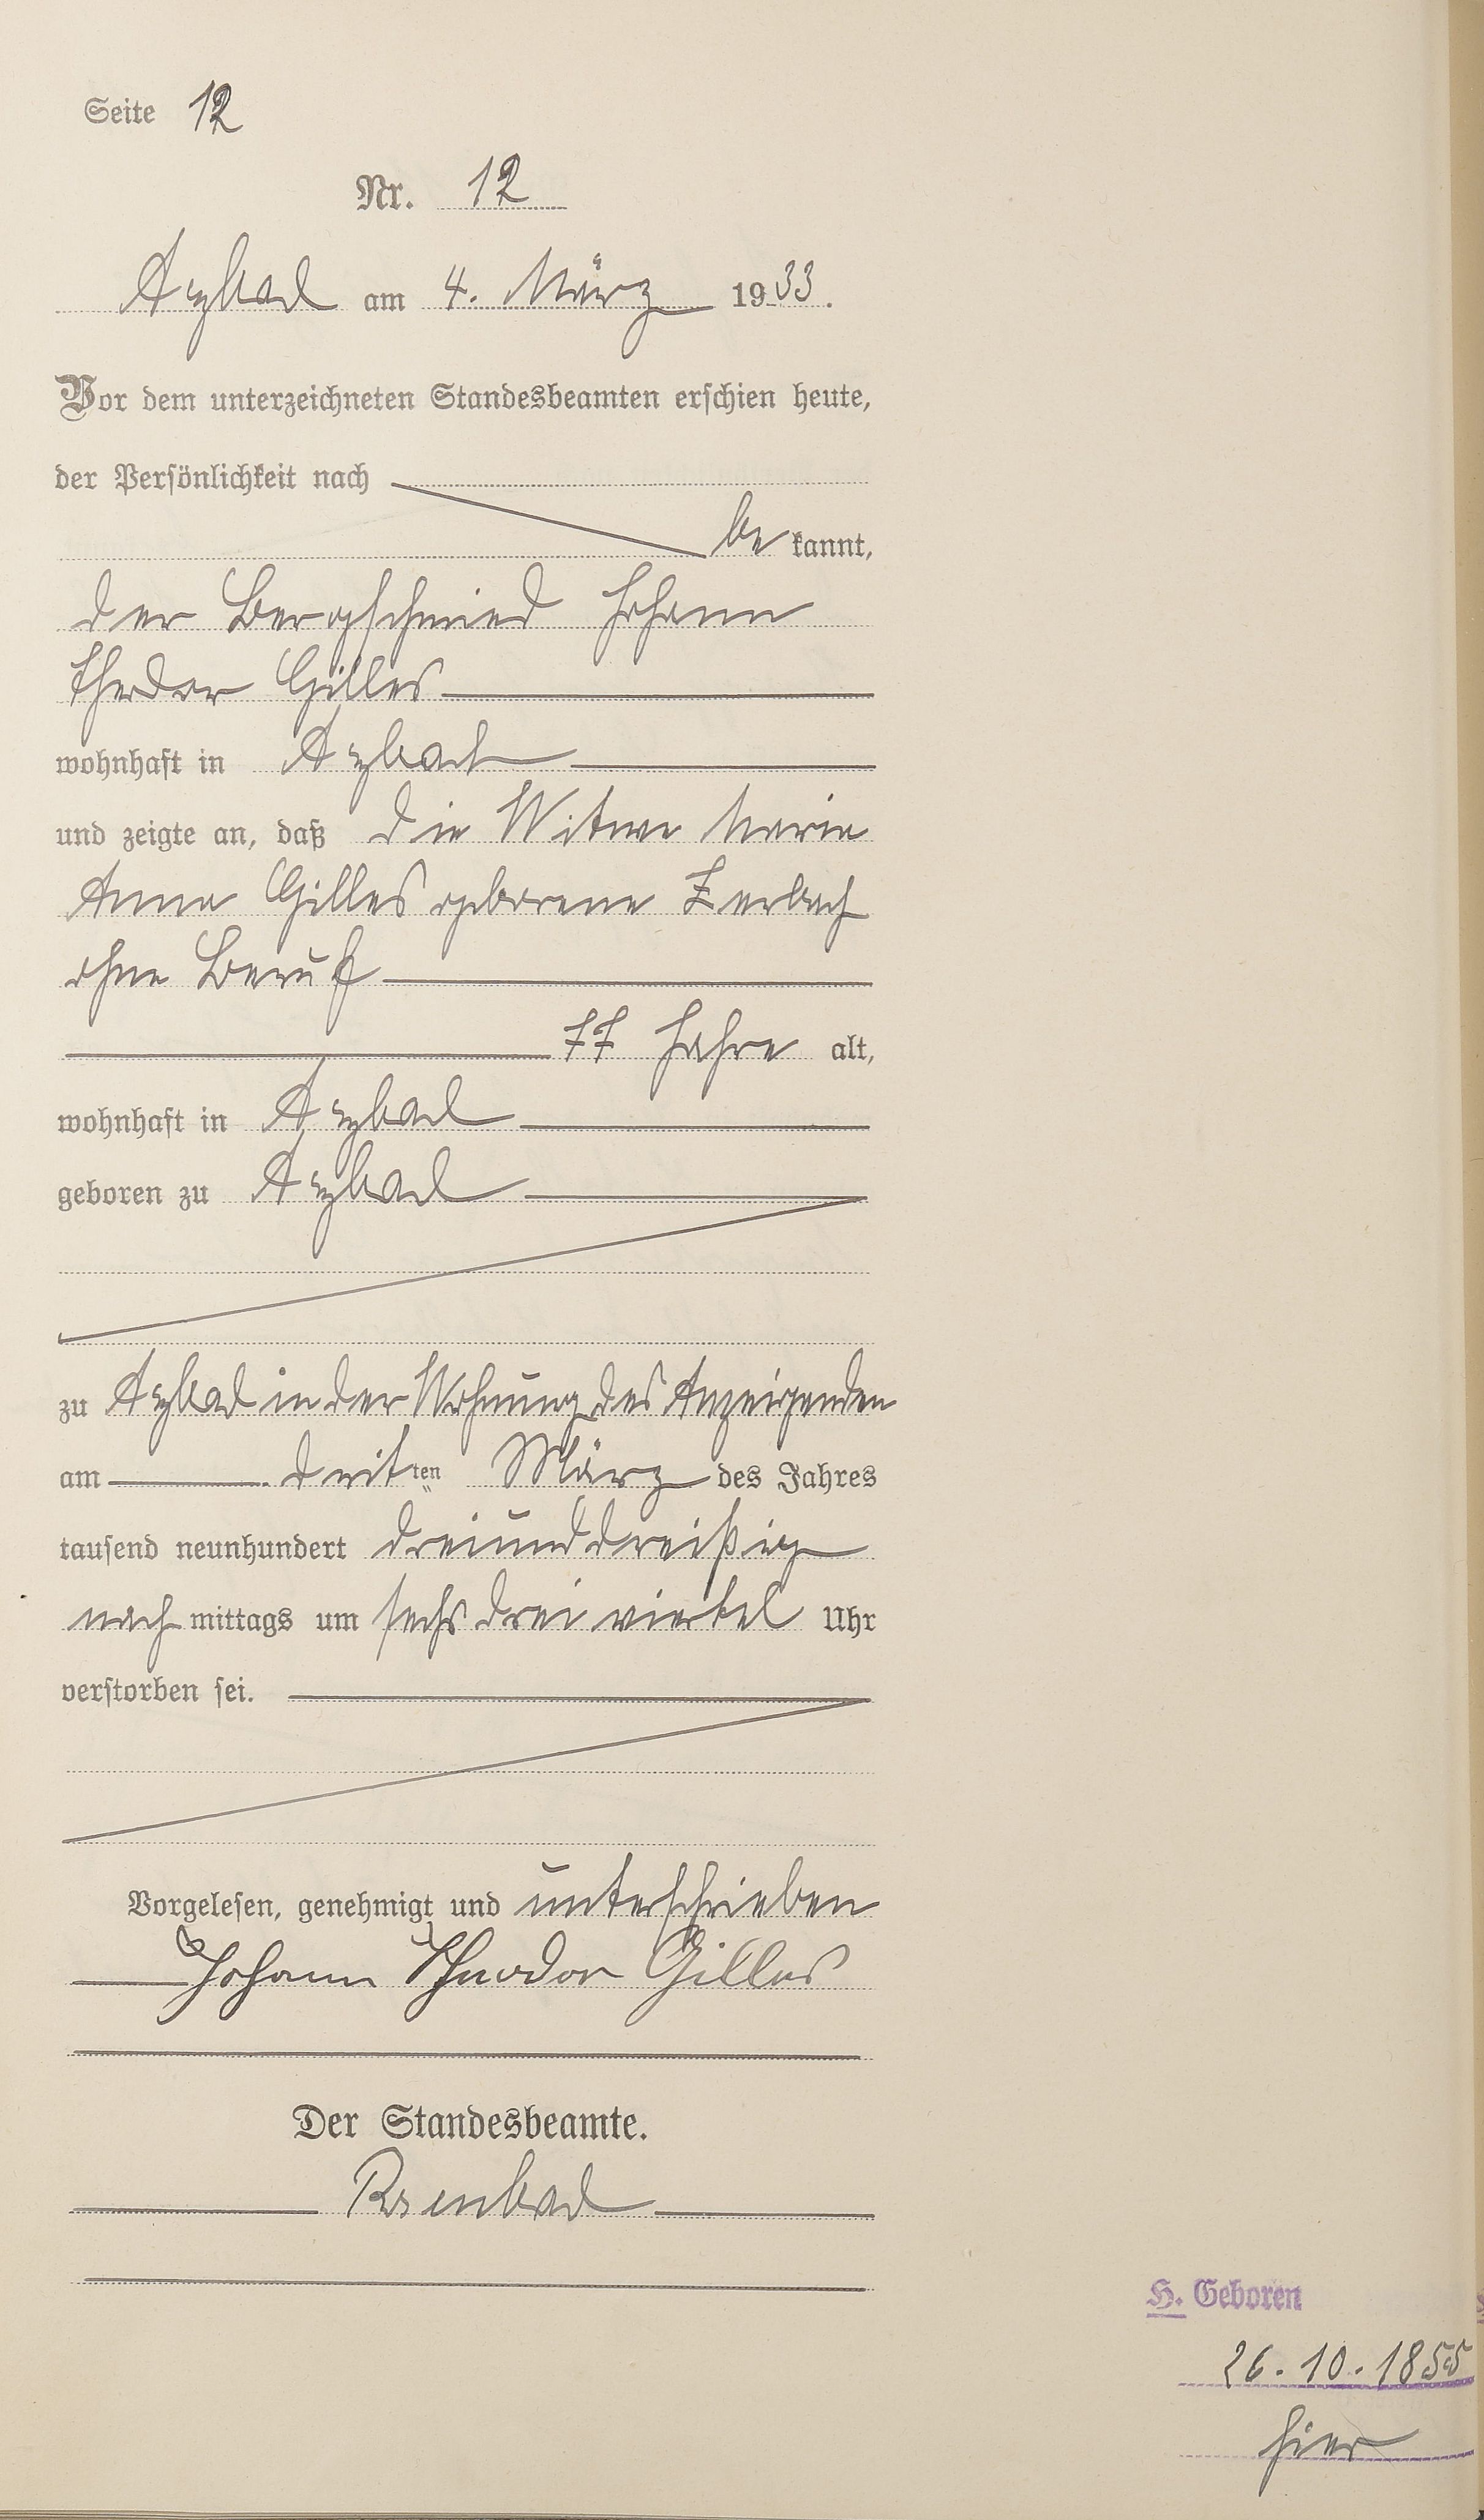 Seite 12
Nr. 12
Asbach am 4. März 1933.
Vor dem unterzeichneten Standesbeamten erschien heute,
der Persönlichkeit nach
be kannt,
der Bergschmied Johann
Theodor Gilles
wohnhaft in
und zeigte an, daß die Witwe Maria
Anna Gilles geborene Zerbach
ohne Beruf
77 Jahre alt,
wohnhaft in
geboren zu
zu in der Wohnung des Anzeigenden
am dritten März des Jahres
tausend neunhundert dreiunddreißig
nach mittags um sechs drei viertel Uhr
verstorben sei.
Vorgelesen, genehmigt und unterschrieben
Johann Theodor Gilles
Der Standesbeamte.
H. Geboren
26. 10. 1855
hier